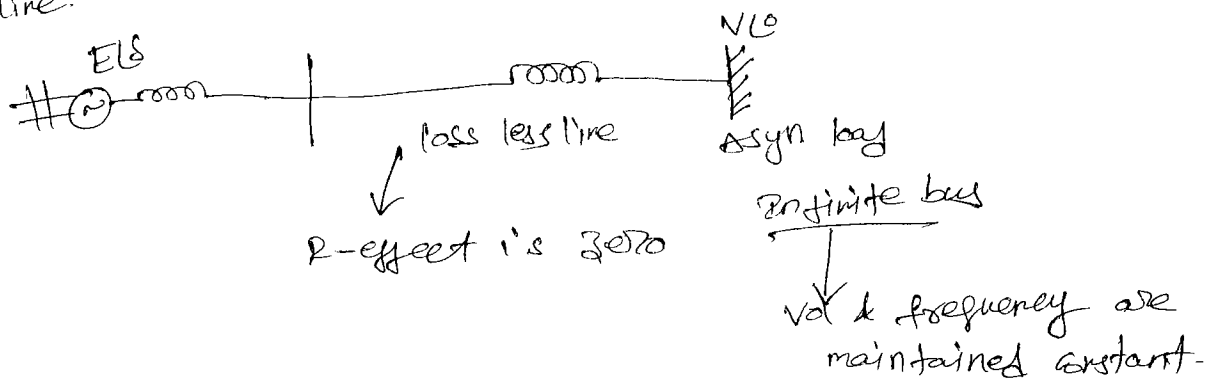 line.
E∠δ
V∠0
loss less line
Asyn load
R-effect is zero
Infinite bus
Vol & frequency are
maintained constant-